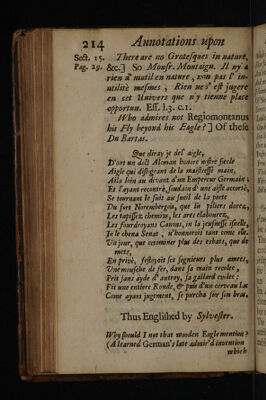 214 Annotations upon
Sect. 15. There are no Grotesques in nature,
Pag. 29. &c.] So Monsr. Montaign. Il ny a
rien d' inutil en nature, non pas l' in-
utilitè mesmes, Rien ne s' est jugere
en cet Univers que n'y tienne place
opportun. Ess. l.3. c.1.
Who admires not Regiomontanus
his Fly beyond his Eagle?] Of these
Du Bartas.
Que diray je del' aigle,
D'ont un doct Aleman honore nostre siecle
Aigle qui deslogeant de la maistresse main,
Alla loin au devant d'un Empereur Germain;
Et l'ayant recontrè, soudain d' une aisle accortè,
Se tournant le suit au sueil de la porte
Du fort Norembergois, que lis piliers dorez,
Les tapissez chemins, les arcs elabourez,
Les fourdroyans Canons, in la jeusnesse isnelle,
In le chena Senat, n'honnoroit tant comme elle.
Un jour, que cetominer plus des esbats, que de
mets,
En privè, festoyoit ses seigneurs plus amees,
Une mousche de fer, dans sa main recelee,
Prit sans ayde d' autroy, sa gallard evolee:
Fit une entiere Ronde, & puis d'un cerveau las
Come ayant jugement, se purcha sur son bras.
Thus Englished by Sylvester.
Why should I not that wooden Eagle mention?
(A learned German's late admir'd invention
which